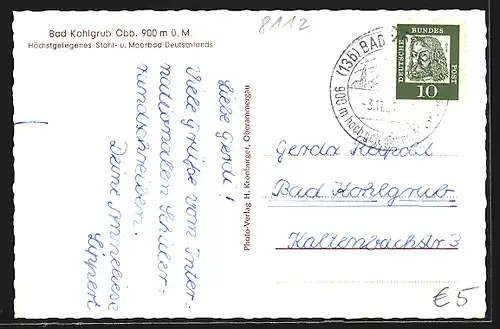 Bad Kohlgrub Obb, 900 m ü. M.
Höchstgelegenes Stahl- u. Moorbad Deutschlands
8112
(13b) BAD
900 m
-3.11.
DEUTSCHE BUNDES POST
10
Liebe Gerdi!
Viele Grüße vom Inter-
nationalen Schüler-
rundschreiben.
Deine Anneliese
Lippert
Photo-Verlag H. Kronburger, Oberammergau
Gerda
Bad Kohlgrub
Kaltenbachstr 3
€5